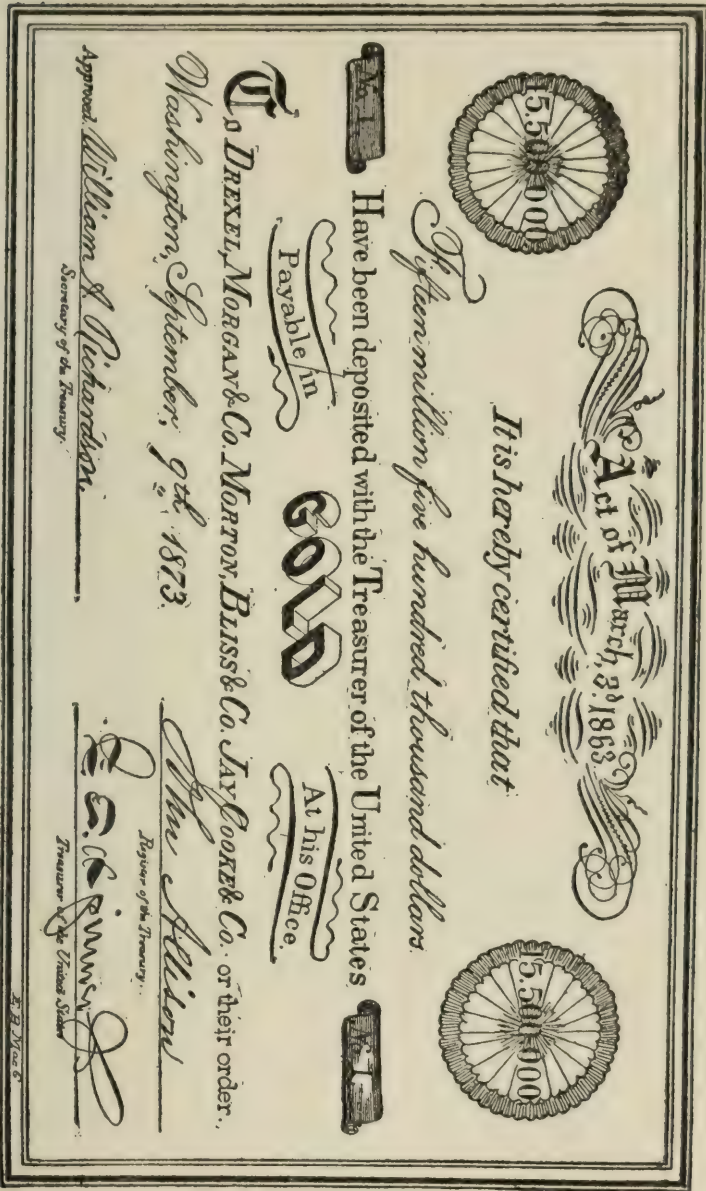 Act of March, 3d. 1863.
15.500.000 15.500.000
It is hereby certified that
Fifteen million five hundred thousand dollars.
No. 1 Have been deposited with the Treasurer of the United States No. 1
Payable in GOLD At his Office.
To DREXEL, MORGAN & Co. MORTON, BLISS & Co. JAY COOKE & Co. or their order.
Washington, September, 9th 1873.
John Allison
Register of the Treasury.
Approved. William A. Richardson.
Secretary of the Treasury.
Treasurer of the United States